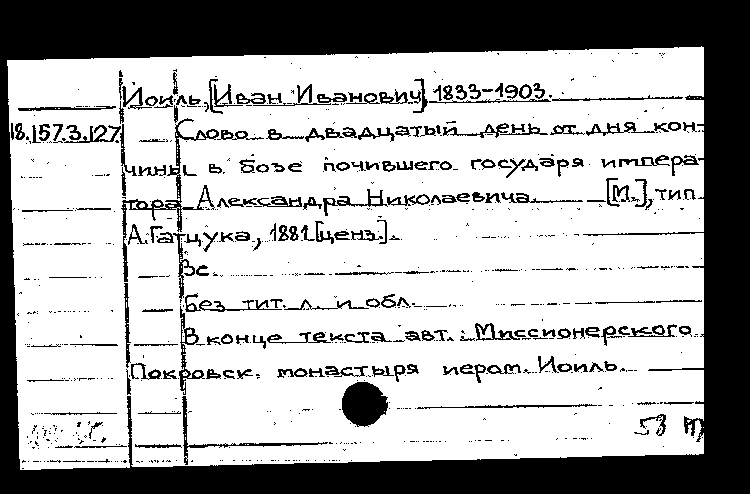 Иоиль, [Иван Иванович], 1833-1903.
18.157.3.127. Слово в двадцатый день от дня кон-
чины в бозе почившего государя импера-
тора Александра Николаевича. [М.], тип.
А. Гатцука, 1881 [ценз.].
3с.
Без тит. л. и обл.
В конце текста авт.: Миссионерского
Покровск. монастыря иером. Иоиль.
53 М